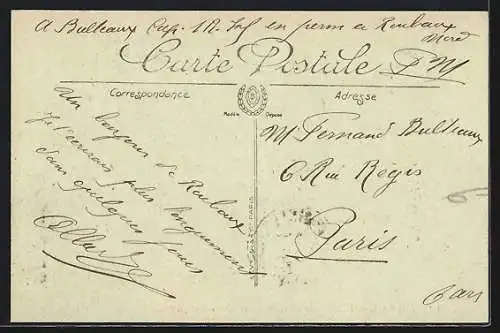 A Bulteaux Cap. 1R. Inf en perm a Roubaix
Nord
Carte Postale
F M
Correspondance
Adresse
Modèle Déposé
Un bonjour de Roubaix
Je t'écrirais plus longuement
dans quelques jours
Albert
Mr Fernand Bulteaux
6 Rue Régis
Paris